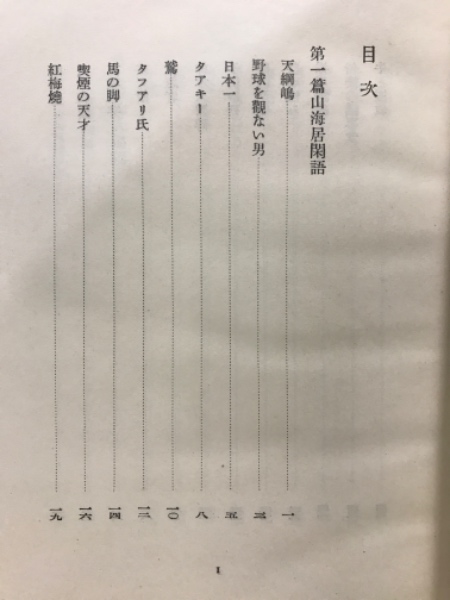 目次
第一篇山海居閑語
天網嶋……一
野球を觀ない男……三
日本一……五
タアキー……八
鷲……一〇
タフアリ氏……一二
馬の脚……一四
喫煙の天才……一六
紅梅燒……一九
1